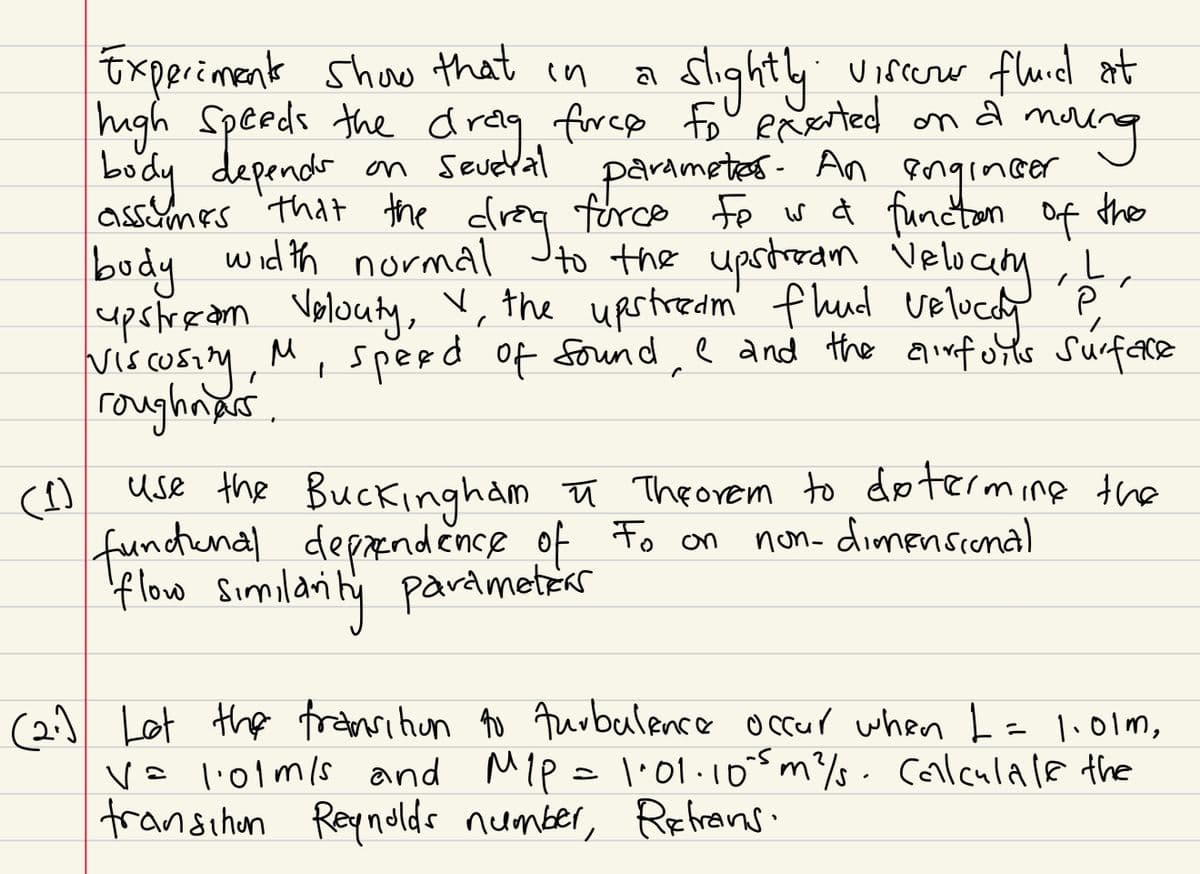 Experiments show that in a slightly viscous fluid at
high speeds the drag force FD exerted on a moving
body depends on several parameters. An engineer
assumes that the drag force FD is a function of the
body width normal to the upstream Velocity, L,
upstream Velocity, V, the upstream fluid velocity P,
viscosity, M, speed of sound, c and the airfoils surface
roughness.
(1) use the Buckingham π Theorem to determine the
functional dependence of FD on non-dimensional
flow similarity parameters
(2.) Let the transition to turbulence occur when L = 1.01m,
V = 1.01m/s and M/P = 1.01.10⁻⁵ m²/s. Calculate the
transition Reynolds number, Retrans.